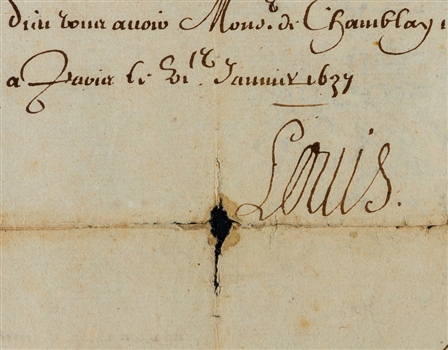 dieu vous avoir Monsr. de Chamblay
a Paris le Janvier 1637
Louis.